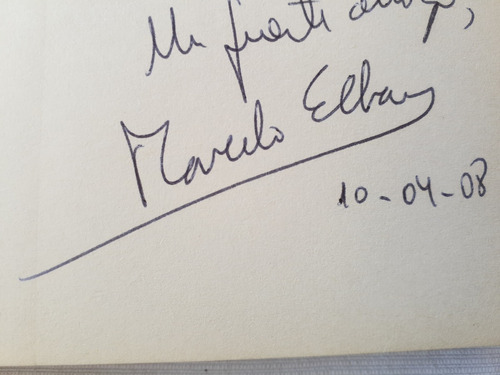 Un fuerte abrazo,
Marcelo Elbaum
10-04-08